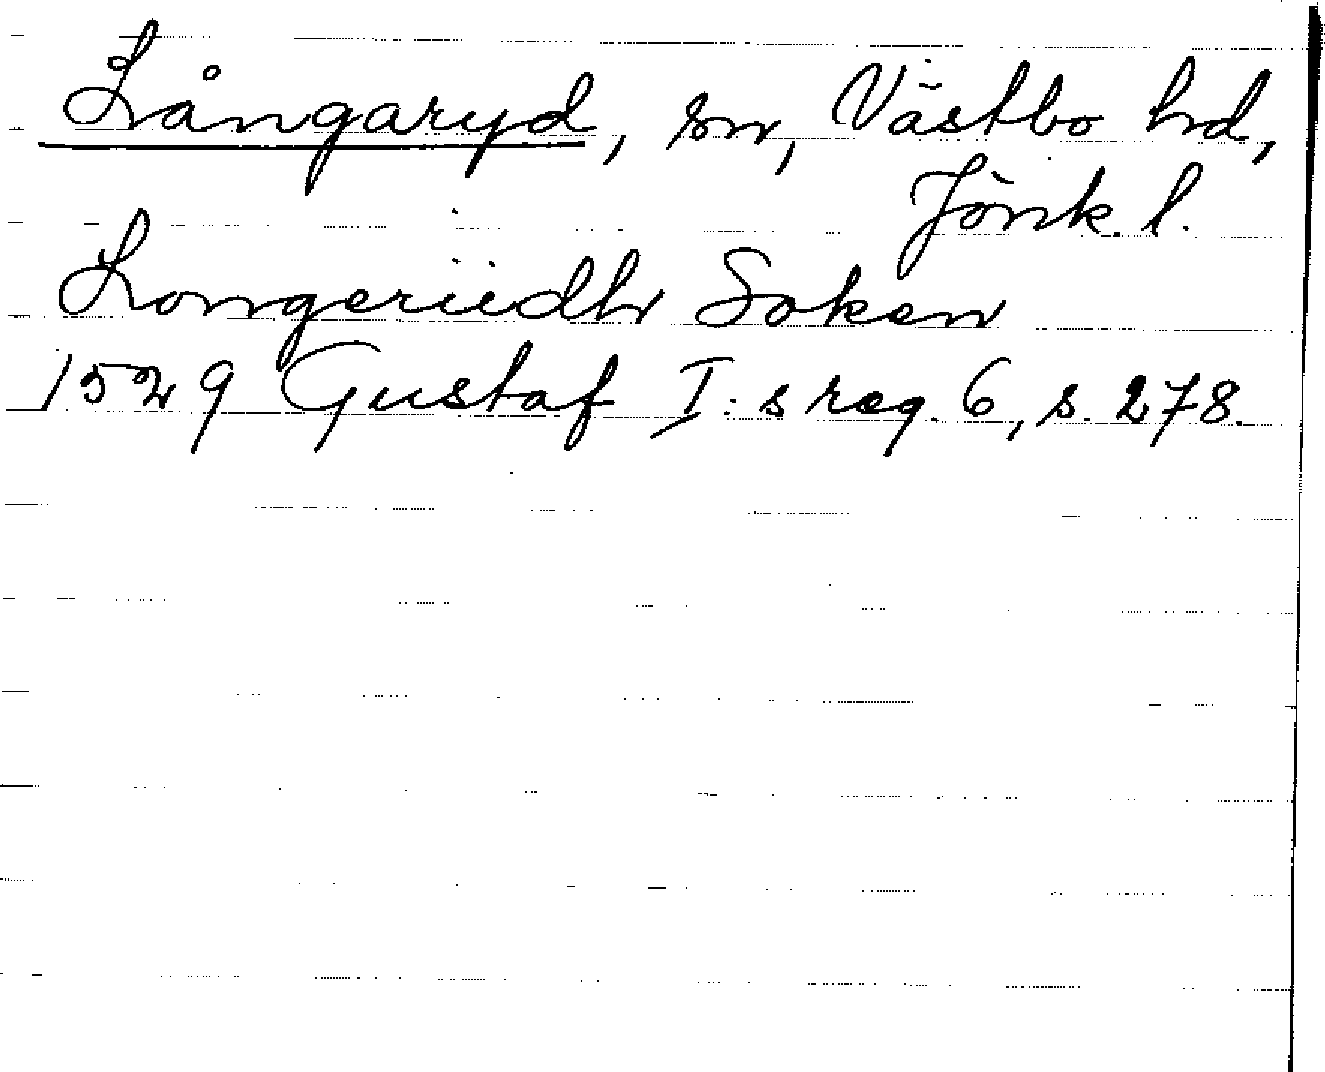 Långaryd, sn, Västbo hd,
Jönk. l.
Longerüdh Soken
1529 Gustaf I:s reg. 6, s. 278.